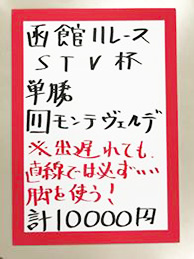 函館11レース
STV杯
単勝
11 モンテヴェルデ
※出遅れても、
直線では必ず…
脚を使う!
計10000円